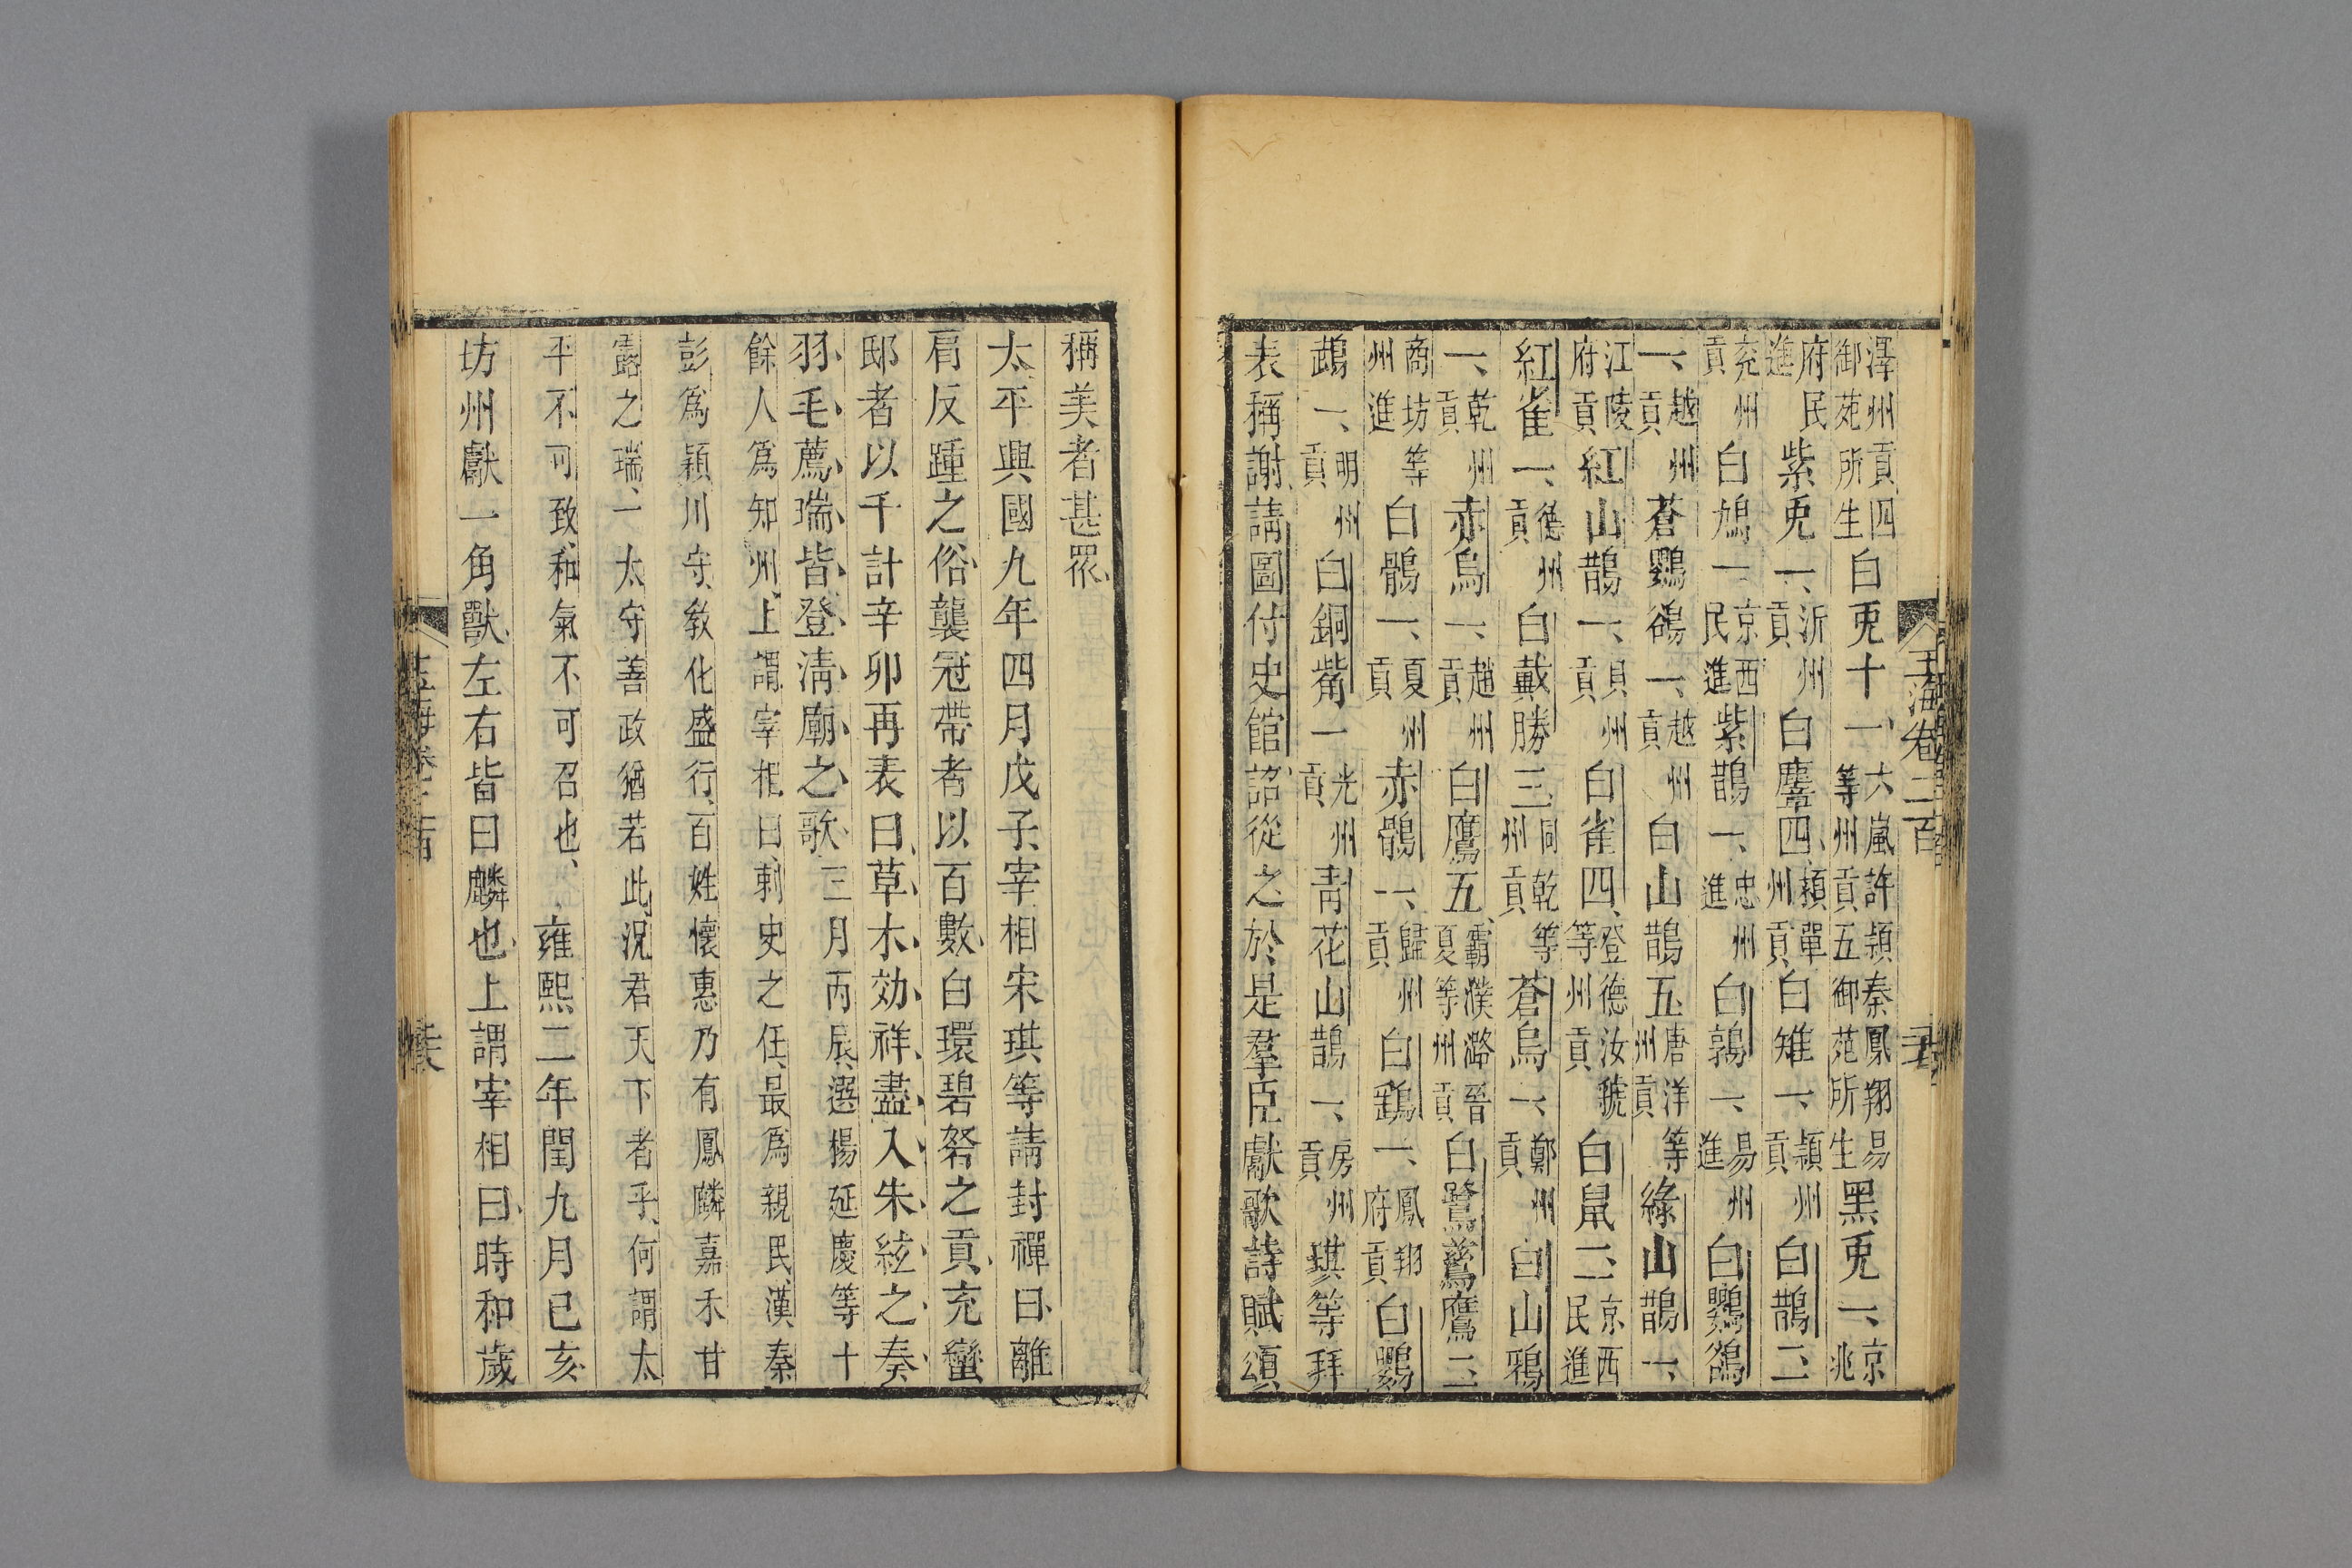 玉海卷二百
澤州貢四御苑所生白兎十一、六嵐許潁秦鳳翔易等州貢五御苑所生黑兎一、京兆
府民進紫兎一、沂州貢白麞四、潁單州貢白雉一、潁州貢白鵲二
兖州貢白鳩一、京西民進紫鵲一、忠州進白鶉一、易州進白鸚鵒
一、越州貢蒼鸚鵒一、越州貢白山鵲五、唐洋等州貢綠山鵲一、
江陵府貢紅山鵲一、貝州貢白雀四、登德汝虢等州貢白鼠二、京西民進
紅雀一、德州貢白戴勝三、同乾等州貢蒼烏一、鄭州貢白山鴉
一、乾州貢赤烏一、趙州貢白鷹五、霸濮潞晉夏等州貢白鷺鷥鷹二、
商坊等州進白鶻一、夏州貢赤鶻一、歸州貢白鵝一、鳳翔府貢白鸚
鵡一、明州貢白銅觜一光州貢青花山鵲一、房州貢琪等拜
表稱謝請圖付史館詔從之於是羣臣獻歌詩賦頌
稱美者甚眾、
太平興國九年四月戊子、宰相宋琪等請封禪曰、離
肩反踵之俗、襲冠帶者以百數、白環碧砮之貢、充蠻
邸者以千計辛卯再表曰、草、木、効、祥、盡、入、朱、絃、之、奏、
羽、毛、薦、瑞、皆、登、淸、廟、之、歌、三月丙辰、選楊延慶等十
餘人爲知州、上謂宰相曰、刺史之任、最爲親民、漢秦
彭爲潁川守、敎化盛行、百姓懷惠乃有鳳麟嘉禾甘
露之瑞、一太守善政猶若此、況君天下者乎、何謂太
平不可致、和氣不可召也、雍熙二年閏九月己亥
坊州獻一角獸、左右皆曰麟也、上謂宰相曰、時和歲